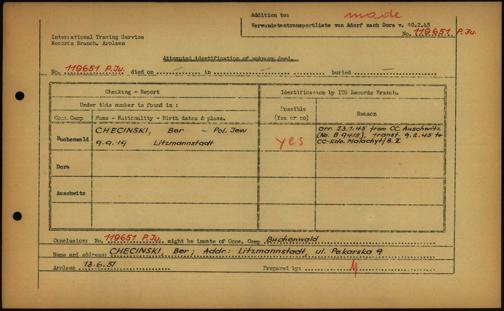 Addition to: made
International Tracing Service
Records Branch, Arolsen
Verwundetentransportliste von Adorf nach Dora v. 10.2.45
No. 119651 P.Ju.
Attempted identification of unknown dead.
No. 119651 P.Ju. died on in buried
Checking - Report
Identification by ITS Records Branch.
Under this number is found in :
Possible (Yes or no)
Reason
Conc. Camp
Name - Nationality - Birth dates & place.
Buchenwald
CHECINSKI, Ber - Pol. Jew
9.9.19 Litzmannstadt
yes
arr. 23.1.45 from CC. Auschwitz
(No. B 9418), transf. 9.2.45 to
CC-Kdo. Malachyt/B. II
Dora
Auschwitz
Conclusion: No. 119651 P.Ju. might be inmate of Conc. Camp Buchenwald
Name and address: CHECINSKI, Ber; Addr: Litzmannstadt, ul. Pekarska 9
Arolsen 13.6.51 Prepared by: